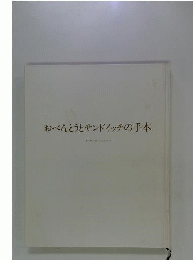 おべんとうとサンドイッチの手本